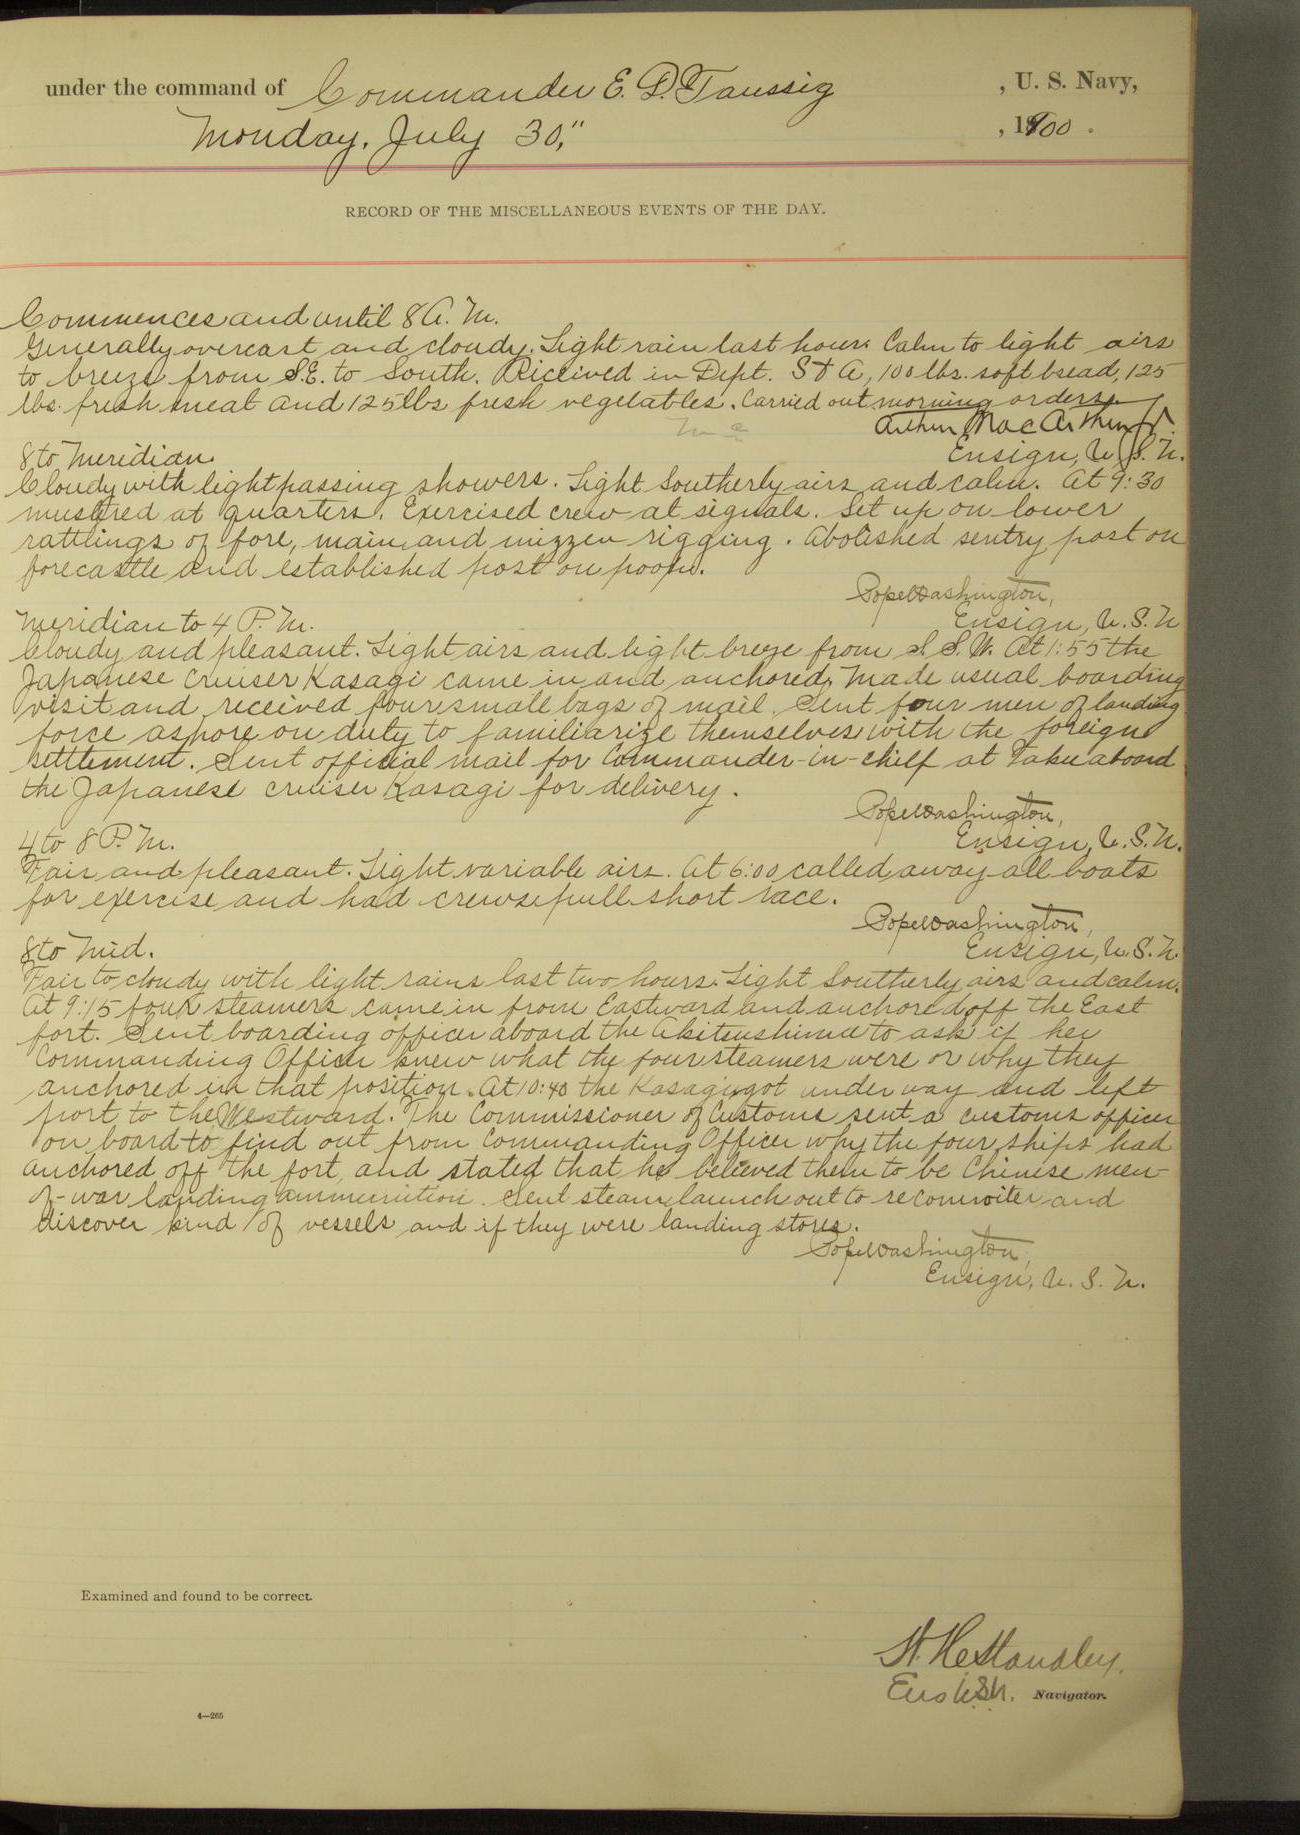 under the command of Commander E. D. Taussig, U. S. Navy,
Monday, July 30," , 1900.
RECORD OF THE MISCELLANEOUS EVENTS OF THE DAY.
Commences and until 8 A. M.
Generally overcast and cloudy. Light rain last hour. Calm to light airs
to breeze from S.E. to South. Received in Dept. S & A, 100 lbs. soft bread, 125
lbs. fresh meat and 125 lbs fresh vegetables. Carried out morning orders.
Arthur MacArthur Jr.
Ensign, U. S. N.
8 to Meridian.
Cloudy with light passing showers. Light Southerly airs and calm. At 9:30
mustered at quarters. Exercised crew at signals. Set up on lower
rattlings of fore, main, and mizzen rigging. Abolished sentry post on
forecastle and established post on poop.
Pope Washington,
Ensign, U. S. N
Meridian to 4 P. M.
Cloudy and pleasant. Light airs and light breeze from S. S. W. At 1:55 the
Japanese cruiser Kasagi came in and anchored, Made usual boarding
visit and received four small bags of mail. Sent four men of landing
force ashore on duty to familiarize themselves with the foreign
settlement. Sent official mail for Commander-in-chief at Taku aboard
the Japanese cruiser Kasagi for delivery.
Pope Washington,
Ensign, U. S. N.
4 to 8 P. M.
Fair and pleasant. Light variable airs. At 6:00 called away all boats
for exercise and had crews pull short race.
Pope Washington,
Ensign, U. S. N.
8 to Mid.
Fair to cloudy with light rains last two hours. Light Southerly airs and calm.
At 9:15 four steamers came in from Eastward and anchored off the East
fort. Sent boarding officer aboard the Akitsushima to ask if her
Commanding Officer knew what the four steamers were or why they
anchored in that position. At 10:40 the Kasagi got under way and left
port to the Westward. The Commissioner of Customs sent a customs officer
on board to find out from Commanding Officer why the four ships had
anchored off the fort, and stated that he believed them to be Chinese men-
of-war landing ammunition. Sent steam launch out to reconnoiter and
discover kind of vessels and if they were landing stores.
Pope Washington,
Ensign, U. S. N.
Examined and found to be correct.
W. H. Standley,
Ens USN. Navigator.
4—265